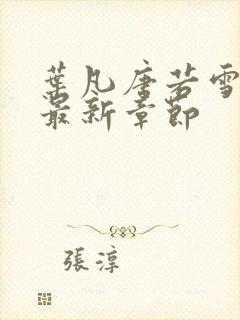 葉凡唐若雪
最新章節
張淳